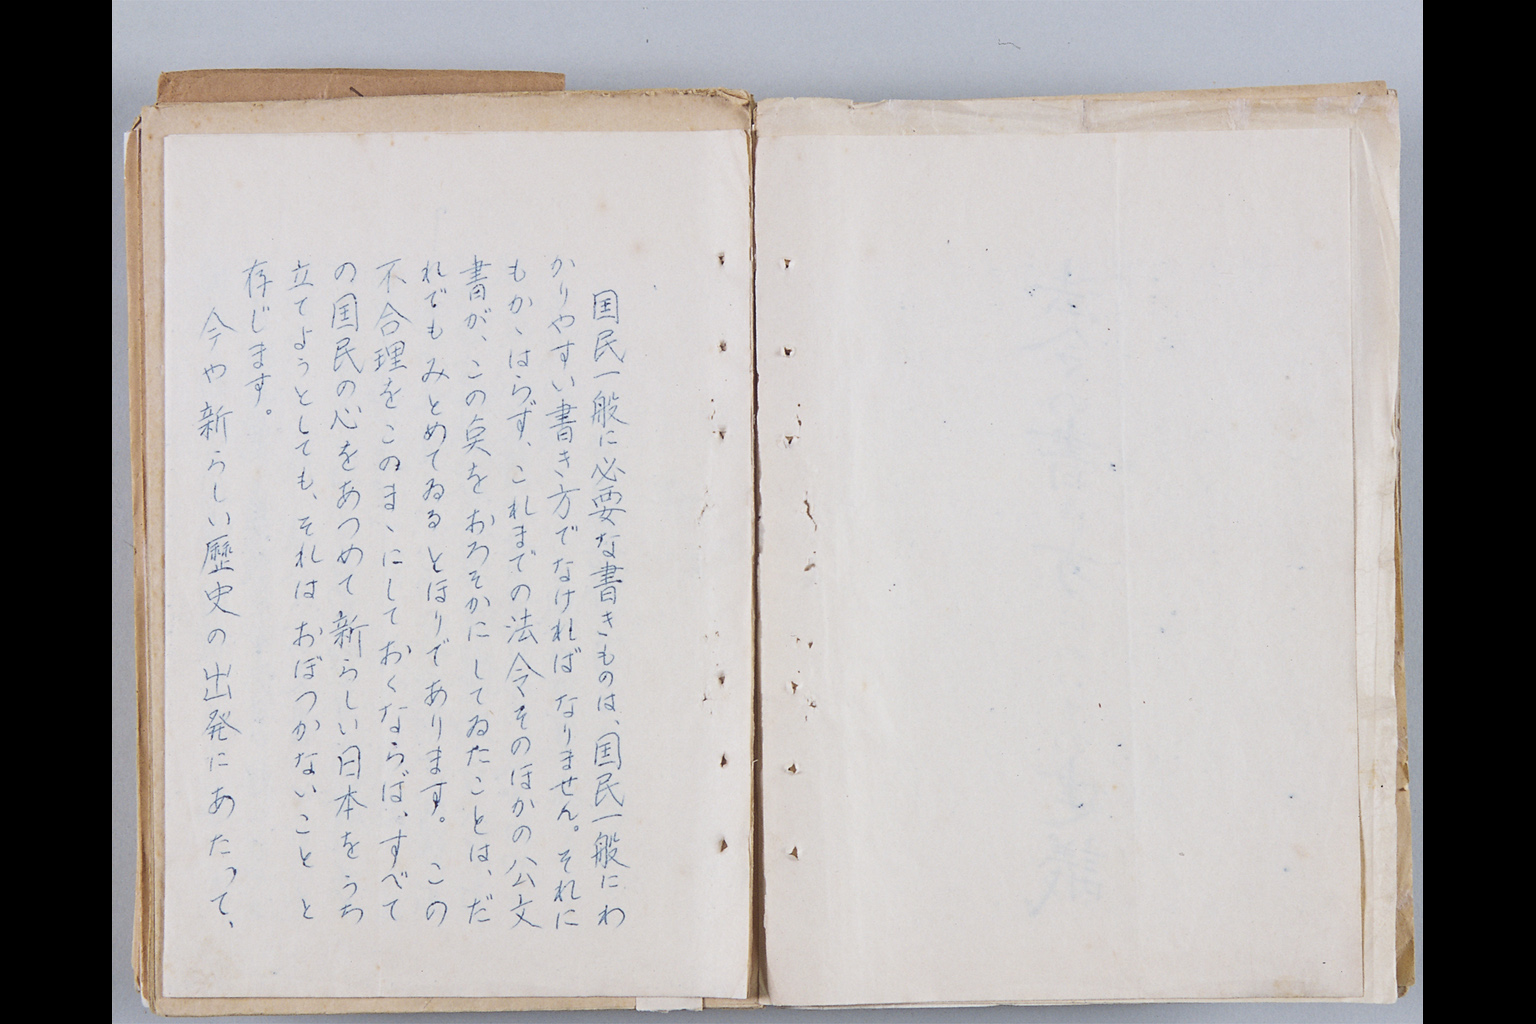 国民一般に必要な書きものは、国民一般にわ
かりやすい書き方でなければなりません。それに
もかゝはらず、これまでの法令そのほかの公文
書が、この点をおろそかにしてゐたことは、だ
れでもみとめてゐるとほりであります。この
不合理をこのまゝにしておくならば、すべて
の国民の心をあつめて新らしい日本をうち
立てようとしても、それはおぼつかないことと
存じます。
今や新らしい歴史の出発にあたって、